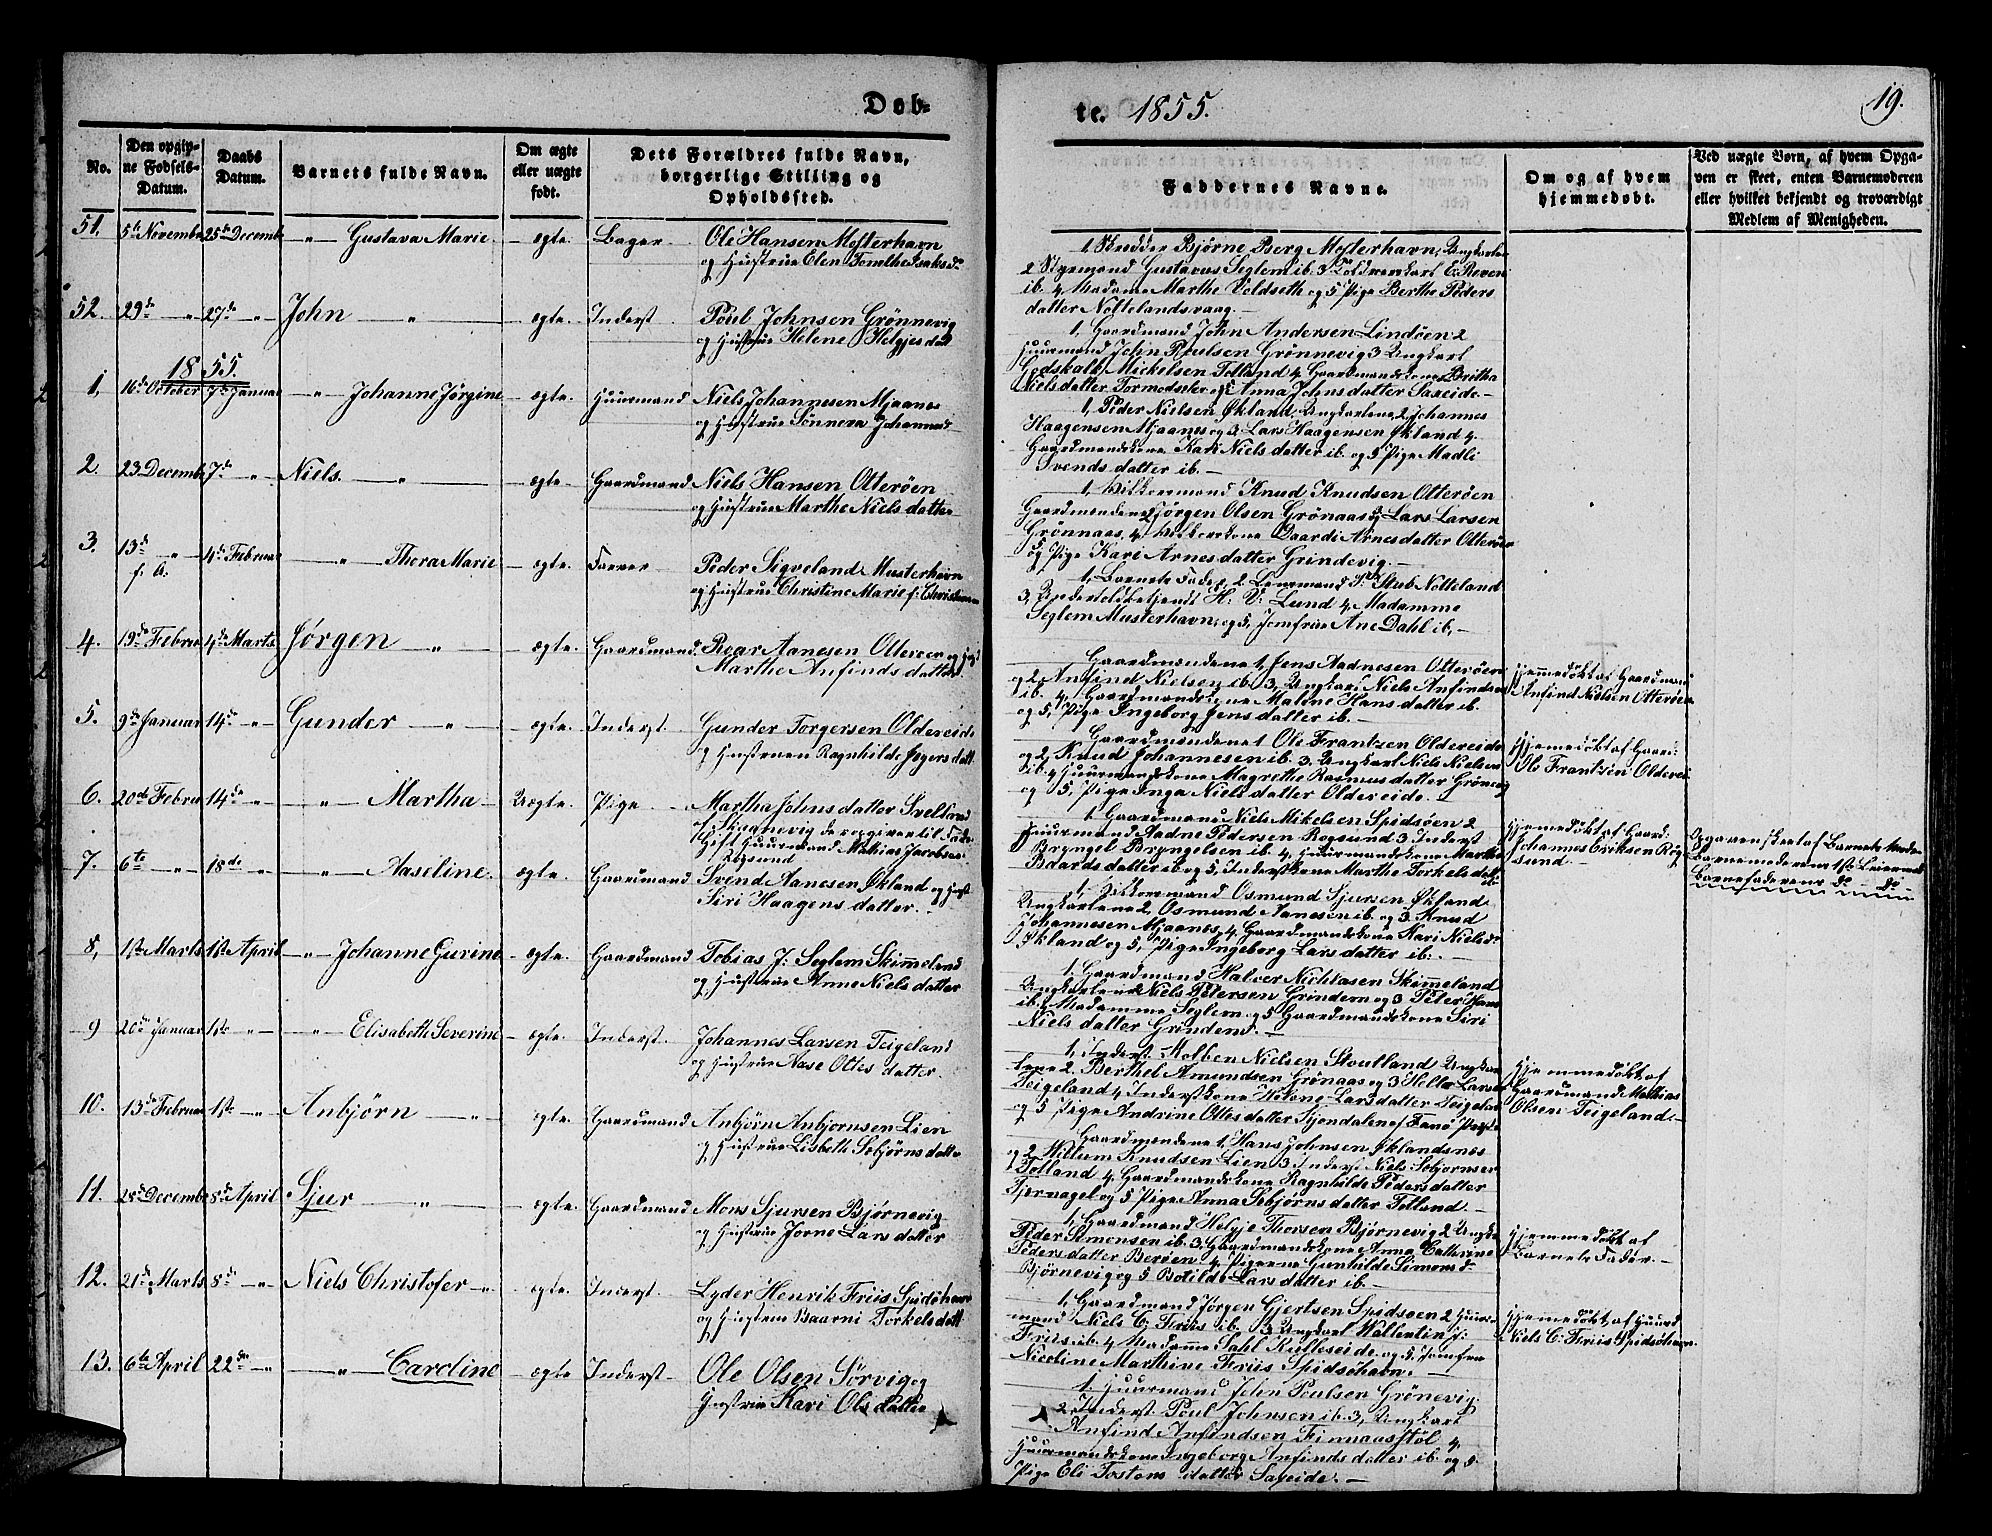 Døb-
te. 1855.
19.
No.
Den opgiv-
ne Fødsels-
Datum.
Daabs
Datum.
Barnets fulde Navn.
Om ægte
eller uægte
født.
Dets Forældres fulde Navn,
borgerlige Stilling og
Opholdssted.
Faddernes Navne.
Om og af hvem
hjemmedøbt.
Ved uægte Børn, af hvem Opga-
ven er skeet, enten Barnemoderen
eller hvilket bekjendt og troværdigt
Medlem af Menigheden.
51. 5te November 25de Decemb — " — Gustava Marie. — ægte. Bager Ole Hansen Mosterhavn
og Hustrue Elen Tomithe Isaksd.
1, Skrædder Bjørne Berg Mosterhavn, Ungkarl
2 Styrmand Gustavus Seglem ib. 3 Toldroerskarl E. Reven
ib. 4 Madame Marthe Voldseth og 5 Pige Berthe Peders
datter Nottelandsvaag. —
52. 29de — " — 27de — " — John — " — ægte. Inderst Poul Johnsen Grønnevig
og Hustrue Helene Helgjesdatt
1, Gaardmand John Andersen Lindøen 2
Huusmand John Poulsen Grønnevig 3 Ungkarl
Godskalk Mickelsen Tolland 4 Gaardmandskone Britha
Nielsdatter Tormodster og 5 Anna Johnsdatter Saxeide. —
1855.
1, 16de October 7de Januar — " — Johanne Jørgine — ægte. Huusmand Niels Johannesen Mjaanes
og Hustrue Sønneva Johannesd
1, Peder Nielsen Økland, Ungkarlene 2 Johannes
Haagensen Mjaanes og 3 Lars Haagensen Økland 4
Gaardmandskone Kari Nielsdatter ib. og 5 Pige Madli
Svendsdatter ib. —
2. 23 Decembr 7de — " — Niels. — " — ægte. Gaardmand Niels Hansen Otterøen
og Hustrue Marthe Nielsdatter
1, Vilkaarsmand Knud Knudsen Otterøen
Gaardmændene 2 Jørgen Olsen Grønaas og 3 Lars Larsen
Grønnaas, 4 Vilkaarskone Baardi Arnesdatter Otterøen
og Pige Kari Arnesdatter Grindevig. —
3. 13de — " — f. A. 4de Februar — " — Thora Marie — ægte. Farver Peder Sigveland Musterhavn
og Hustrue Christine Marie f. Christensen
1, Barnets Fader, 2 Lensmand Stub Notteland
3, Undertoldbetjent H. V. Lund 4 Madamme
Seglem Musterhavn, og 5, Jomfrue Ane Dahl ib. —
4. 19de Februar 4de Marts Jørgen — " — ægte. Gaardmand Roar Aanesen Otterøen og Hust
Marthe Anfindsdatter
Gaardmændene 1, Jens Aadnesen Otterøen
og 2 Anfind Nielsen ib. 3, Ungkarl Niels Anfindsen
ib. 4, Gaardmandskone Malene Hansdatter ib.
og 5, Pige Ingeborg Jensdatter ib. —
Hjemmedøbt af Gaardmand
Anfind Nielsen Otterøen
5. 9de Januar 14de — " — Gunder — " — ægte. Inderst. Gunder Torgersen Oldereide
og Hustruen Ragnhilde
Gaardmændene 1 Ole Frantzen Oldereide
og 2, Knud Johannesen ib. 3. Ungkarl Niels Nielsen
ib. 4, Huusmandskone Magrethe Rasmusdatter Grønevig
og 5. Pige Inga Nielsdatter Oldereide. —
Hjemmedøbt af Gaard:
Ole Frantzen Oldereide
6. 20de Februar 14de — " — — " — Martha — Uægte. Pige Martha Johnsdatter Sveland
Skaanevig der opgiver til Fader
Gift Huusmand Mathias Jacobsen
Rogsund
1 Gaardmand Niels Mikelsen Spidsøen 2
Huusmand Aadne Pedersen Rogsund 3 Inderst
Bryngel Bryngelsen ib. 4, Huusmandskone Marthe
Baardsdatter ib og 5, Inderstkone Marthe Torkelsdatter ib.
Hjemmedøbt af Gaard:
Johannes Eriksen Rog
sund. —
Opgaven skeet af Barnets Moder
Barnemoderens 1ste Leiermaal
Barnefaderens do — do —
7. 6te — " — 18de — " — — " — Aaseline. ægte. Gaardmand Svend Aanesen Økland og Hust
Siri Haagensdatter. —
1, Vilkaarsmand Osmund Sjursen Økland
Ungkarlene 2, Osmund Aanesen ib. og 3. Knud
Johannesen Mjaanes, 4, Gaardmandskone Kari Nielsd
Økland og 5, Pige Ingeborg Larsdatter ib. —
8, 1ste Marts 1ste April — " — Johanne Gurine — ægte. Gaardmand Tobias J. Seglem Skimmeland
og Hustrue Anne Nielsdatter
1. Gaardmand Halver Nicklasen Skimmeland
Ungkarlene 2 Niels Petersen Grindem og 3 Peter Hans
ib. 4 Madamme Seglem og 5 Gaardmandskone Siri
Nielsdatter Grindem. —
9 20de Januar 1ste — " — — " — Elisabeth Severine — ægte. Inderst. Johannes Larsen Teigeland
og Hustrue Aase Ottesdatter.
1, Inderst. Kolben Nielsen Stoutland Ungkar
lene 2. Berthel Amundsen Grønaas og 3 Helle Larsen
Teigeland 4 Inderstkone Helene Larsdatter Teigeland
og 5 Pige Andrine Ottesdatter
Hjemmedøbt af
Gaardmand Mathias
Olsen Teigeland. —
10. 13de Februar 1ste — " — Anbjørn — " — ægte. Gaardmand Anbjørn Anbjornsen Lien
og Hustrue Lisbeth Sebjørnsdatter
Gaardmændene 1, Hans Johnsen Øklandsnes
og 2 Willum Knudsen Lien 3 Inderst Niels Sebjornsen
Tolland 4 Gaardmandskone Ragnhilde Pedersdatter
Tjernagel og 5 Pige Anna Sebjørnsdatter Tolland —
11. 28de December 8de April Sjur — " — ægte. Gaardmand Mons Sjursen Bjørnevig
og Hustrue Jorne Larsdatter
1, Gaardmand Helgje Thorsen Bjørnevig 2 Ungkar
Peder Simensen ib. 3, Gaardmandskone Anna Cathrine
Pedersdatter Berøen, 4 Pigerne Gunhilde Simonsd
Bjørnevig og 5 Botilde Larsdatter ib. —
Hjemmedøbt af
Barnets Fader. —
12. 21de Marts 8de — " — Niels Christofer — " — ægte. Inderst. Lyder Henrik Friis Spidsøhavn
og Hustrue Baarni Torkelsdatt
1, Gaardmand Jørgen Gjertsen Spidsøen 2 Huus-
mand Niels C. Friis ib. 3 Ungkarl Wallentin
Friis ib. 4, Madame Sahl Kulleseide og 5. Jomfru
Nicoline Marthine Friis Spidsøhavn. —
Hjemmedøbt af Huusmd
Niels C. Friis Spidsøhavn.
13. 6te April 22de — " — — " — Caroline — ægte Inderst — Ole Olsen Sørvig og
Hustrue Kari Olsdatter
1. Huusmand John Poulsen Grønevig.
2. Inderst. Poul Johnsen ib. 3, Ungkarl
Anfind Anfindsen Finnaasstøl 4
Huusmandskone Ingeborg Anfindsdatter ib. og 5.
Pige Eli Tostensdatter Saxeide. —